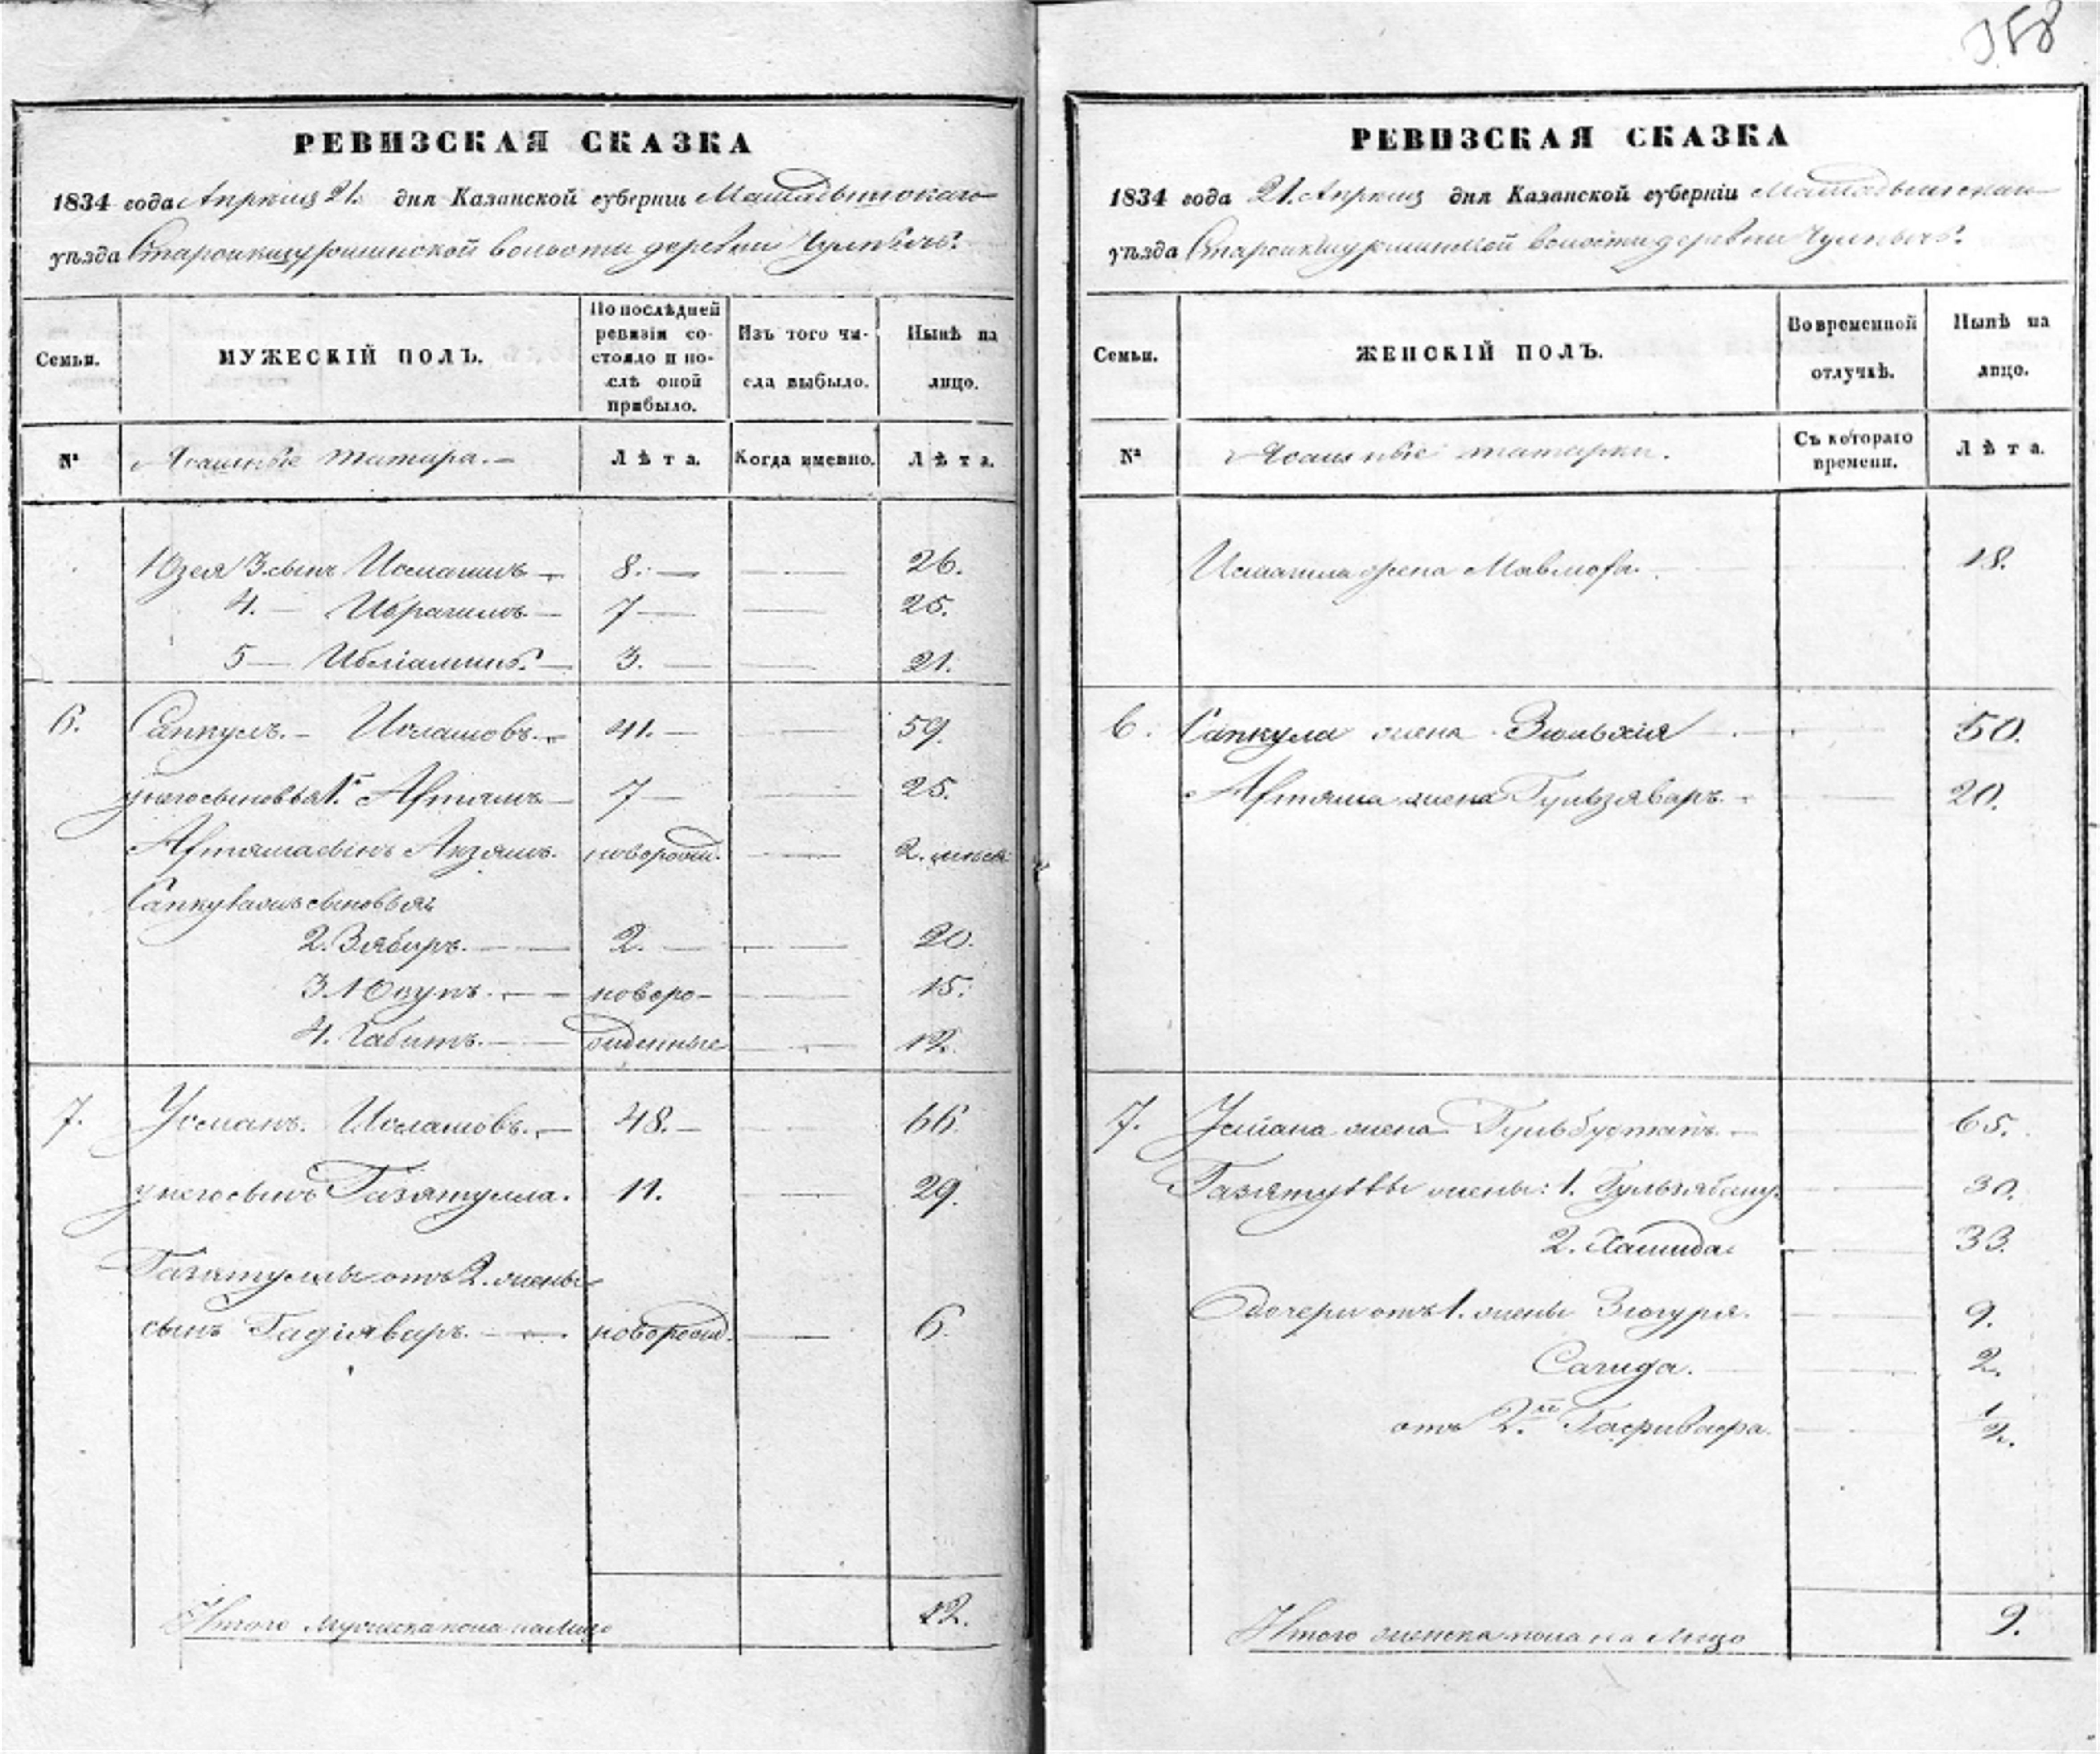 358
РЕВИЗСКАЯ СКАЗКА
1834 года Апреля 21. дня Казанской губерніи Мамадышскаго
уѣзда Старокишурминской волости деревни
Семьи.
МУЖЕСКІЙ ПОЛЪ.
По послѣдней ревизіи состояло и послѣ оной прибыло.
Изъ того числа выбыло.
Нынѣ на лицо.
№
Ясашные татара.
Лѣта.
Когда именно.
Лѣта.
Юзея 3. сынъ Исмагилъ 8. 26.
4. Ибрагимъ 7 25.
5 3. 21.
6. Сапкулъ. Исламовъ. 41. 59.
у него сыновья 1. Афтямъ 7 25.
Афтяма сынъ Акзямъ.новорожд. 2. мѣся
Сапкуловы сыновья
2. Зябиръ. 2. 20.
3. Юсупъ. новоро- 15.
4. Габитъ. жденные 12.
7. Усманъ. Исламовъ. 48. 66.
у него сынъ Газятулла. 11. 29.
Газятуллы отъ 2. жены
сынъ Гадіяваръ. новорожд. 6.
Итого мужеска пола на лицо 12.
РЕВИЗСКАЯ СКАЗКА
1834 года 21. Апреля дня Казанской губерніи Мамадышскаго
уѣзда Старокишурминской волости деревни
Семьи.
ЖЕНСКІЙ ПОЛЪ.
Во временной отлучкѣ.
Нынѣ на лицо.
№
Ясашные татарки.
Съ котораго времени.
Лѣта.
Исмагила жена 18.
6. Сапкула жена Зюльхія 50.
Афтяма жена Гульзяваръ. 20.
7. Усмана жена Гульбустанъ. 65.
Газятуллы жены: 1. Гульзябану. 30.
2. Хамида. 33.
дочери отъ 1. жены Зюгуря. 9.
Сагида. 2.
отъ 2.й 1/2.
Итого женска пола на лицо 9.